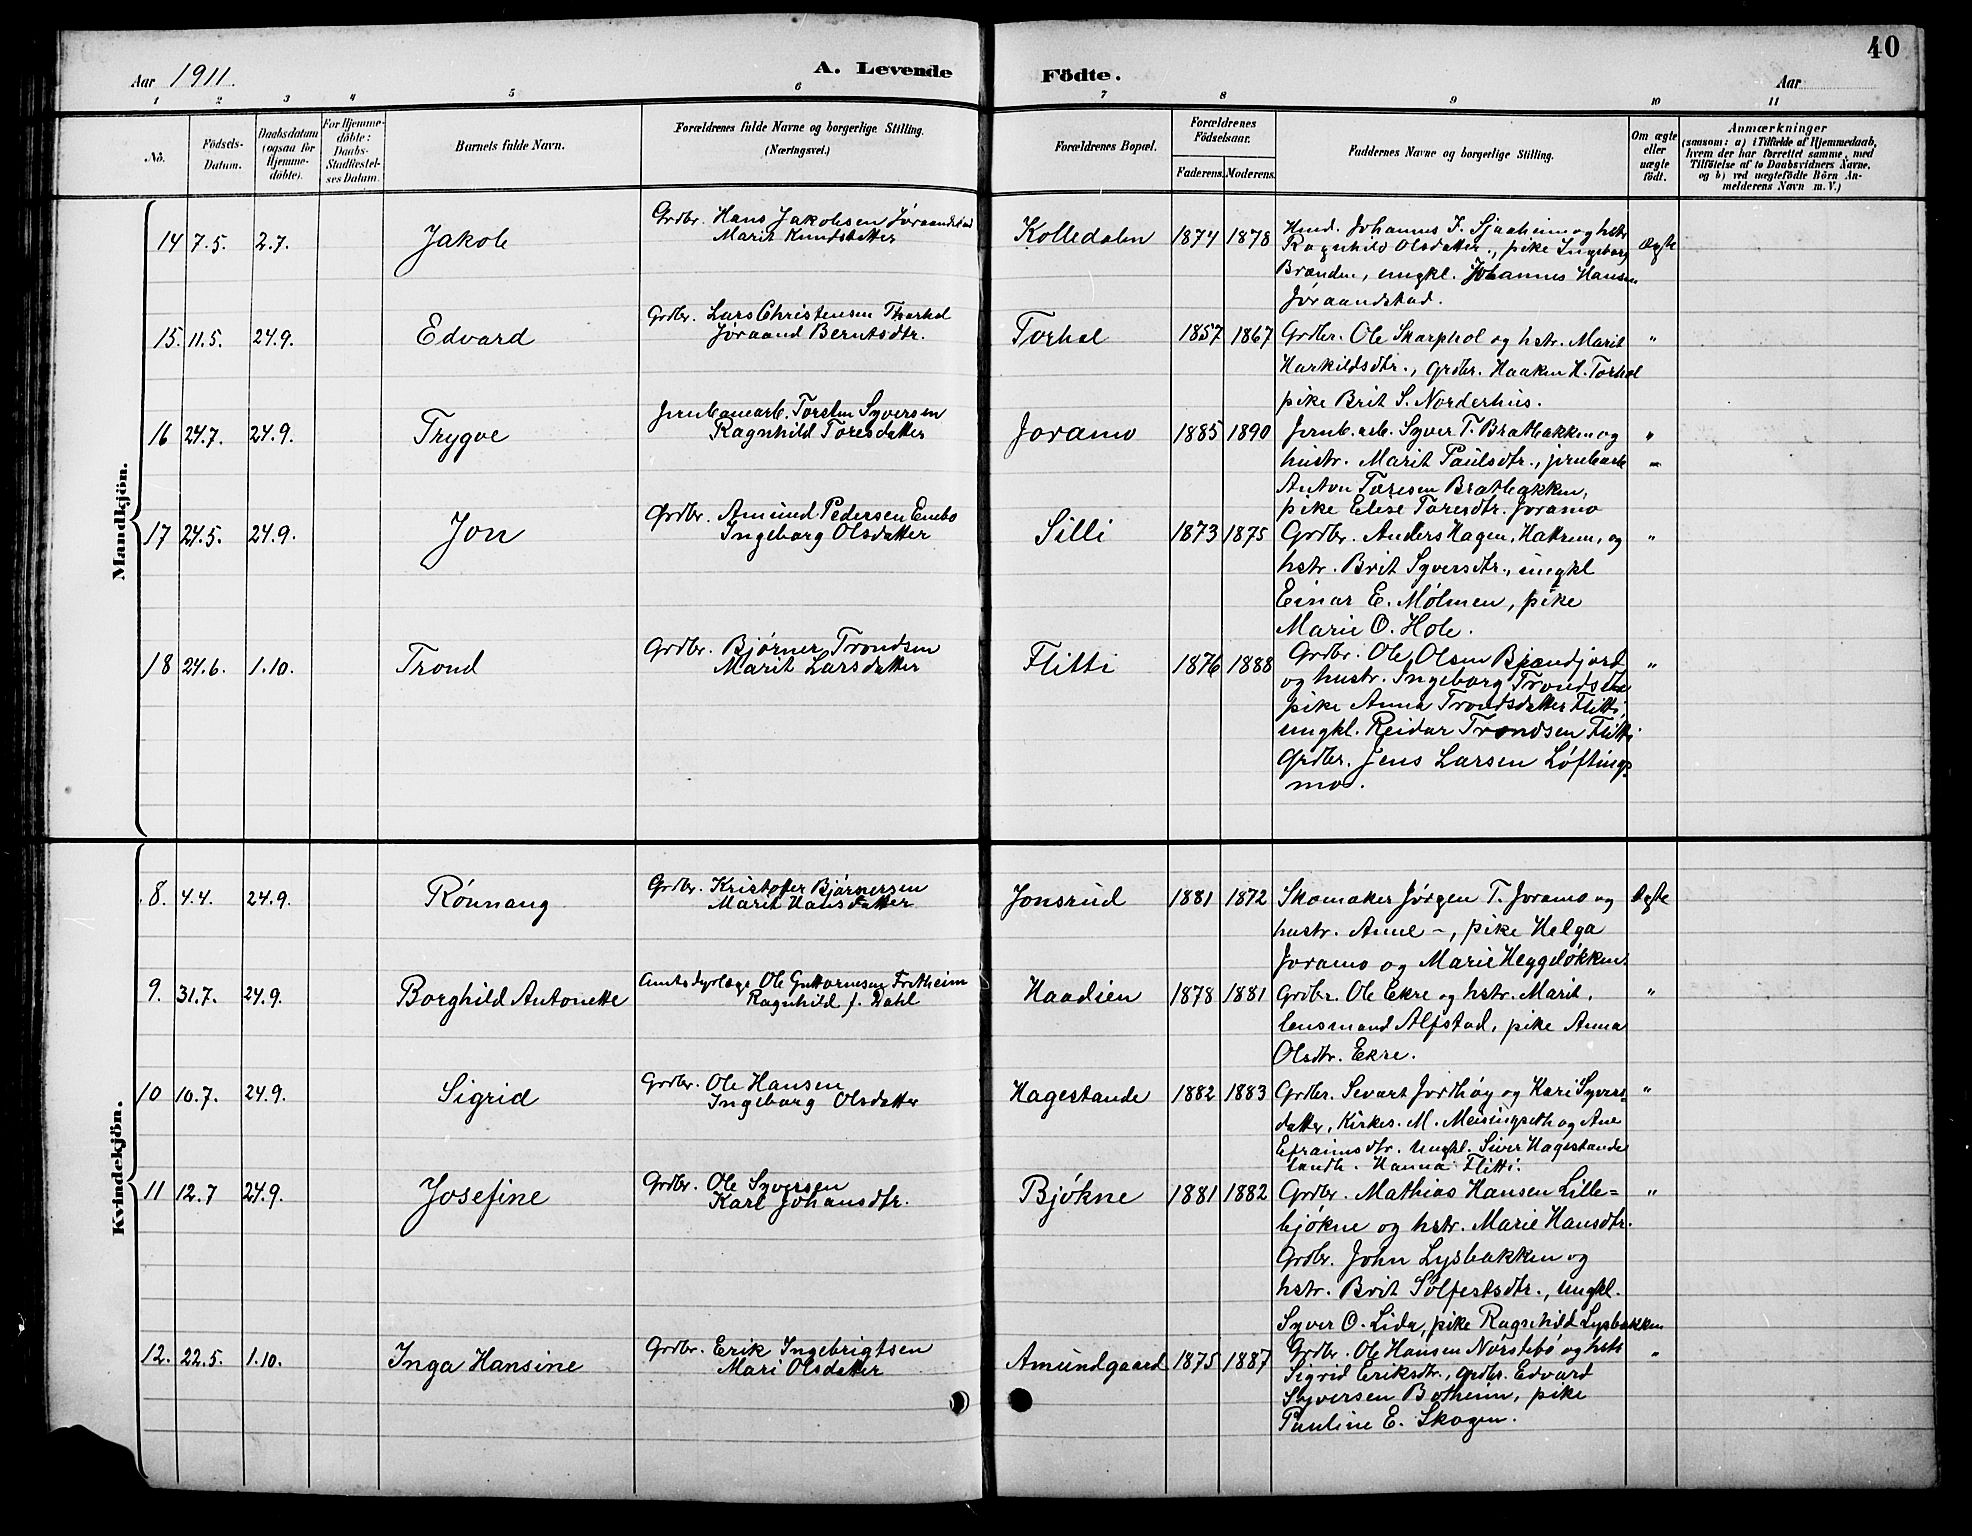 Aar 1911.
A. Levende Födte.
Aar
40
1 2 3 4 5 6 7 8 9 10 11
No.
Födsels-
Datum.
Daabsdatum
(ogsaa for
Hjemme-
döbte).
For Hjemme-
döbte:
Daabs-
Stadfæstel-
ses Datum.
Barnets fulde Navn.
Forældrenes fulde Navne og borgerlige Stilling.
(Næringsvei.)
Forældrenes Bopæl.
Forældrenes
Födselsaar.
Faderens. Moderens.
Faddernes Navne og borgerlige Stilling.
Om ægte
eller
uægte
födt.
Anmærkninger
(saasom: a) i Tilfælde af Hjemmedaab,
hvem der har forrettet samme, med
Tilföielse af to Daabsvidners Navne,
og b) ved uægtefödte Börn An-
melderens Navn m. V.)
Mandkjön.
14 7.5. 2.7. Jakob
Grdbr. Hans Jakobsen Jøraandstad
Marit Knudsdatter
Kolledalen 1874 1878
Hmd. Johannes J. Sjaaheim og hstr.
Ragnhild Olsdatter., pike Ingeborg
Brænden, ungkl. Johannes Hansen
Jøraandstad.
Ægte
15. 11.5. 24.9. Edvard
Grdbr. Lars Christensen Thorhol
Jøraand Berntsdtr.
Torhol 1857 1867
Grdbr. Ole Skarphol og hstr. Marit
Harkildsdtr., grdbr. Haaken H. Torhol
pike Brit S. Norderhus.
"
16 24.7. 24.9. Trygve
Jernbanearb. Torsten Syversen
Ragnhild Toresdatter
Joramo 1885 1890
Jernb.arb. Syver T. Bratbakken og
hustr. Marit Paulsdtr., jernbarb
Anton Toresen Bratbakken,
pike Elise Toresdtr. Joramo
"
17 24.5. 24.9. Jon
Grdbr. Amund Pedersen Enebo
Ingeborg Olsdatter
Silli 1873 1875
Grdbr. Anders Hagen, Hattrem, og
hstr. Brit Syversdtr., ungkl
Einar E. Mølmen, pike
Marie O. Hole.
"
18 24.6. 1.10. Trond
Grdbr. Bjørner Trondsen
Marit Larsdatter
Flitti 1876 1888
Grdbr. Ole Olsen Bjændjord
og hustr. Ingeborg Trondsdtr
pike Anna Trondsdatter Flitti,
ungkl. Reidar Trondsen Flitti
Grdbr. Jens Larsen Løftings-
mo.
"
Kvindekjön.
8. 4.4. 24.9. Rønnaug
Grdbr. Kristofer Bjørnersen
Marit Hansdatter
Jonsrud 1881 1872
Skomaker Jørgen T. Joramo og
hustr. Anne -, pike Helga
Joramo og Marie Heggeløkken.
Ægte
9. 31.7. 24.9. Borghild Antonette
Amtsdyrlæge Ole Guttormsen Fretheim
Ragnhild f. Dahl
Haadien 1878 1881
Grdbr. Ole Ekre og hstr. Marit,
lensmand Alfstad, pike Anna
Olsdtr. Ekre.
"
10 10.7. 24.9. Sigrid
Grdbr. Ole Hansen
Ingeborg Olsdatter
Hagestande 1882 1883
Grdbr. Sevart Jordhøy og Kari Syvers-
datter, Kirkes. M. Meisingseth og Ane
Efraimsdtr. Ungkl. Siver Hagestande
Landh. Hanna Flitti.
"
11 12.7 24.9. Josefine
Grdbr. Ole Syversen
Kari Johansdtr.
Bjøkne 1881 1882
Grdbr. Mathias Hansen Lille-
bjøkne og hstr. Marie Hansdtr.
Grdbr. John Lysbakken og
hstr. Brit Solfestsdtr., ungkl.
Syver O. Lida, pike Ragnhild Lysbakken
"
12. 22.5. 1.10. Inga Hansine
Grdbr. Erik Ingebrigtsen
Mari Olsdatter
Amundgaard 1875 1887
Grdbr. Ole Hansen Norstebø og hstr
Sigrid Eriksdtr., grdbr. Edvard
Syversen Botheim, pike
Pauline E. Skogen.
"